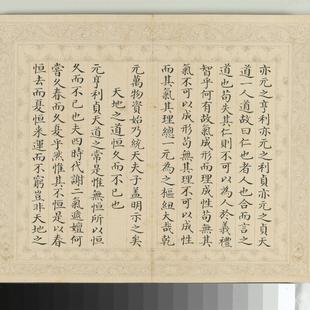 亦元之亨利亦元之利貞亦元之貞天
道一人道故曰仁也者人也合而言之
道也苟失其仁則不可以為人於義禮
智乎何有故氣成形而理成性苟無其
氣不可以成形苟無其理不可以成性
而其氣其理總一元為之樞紐大哉乾
元萬物資始乃統天夫子蓋明示之矣
天地之道恒久而不已也
元亨利貞天道之常是惟無恒所以恒
久而不已也夫四時代謝二氣遞嬗何
嘗久春而久夏乎然惟其不恒是以春
恒去而夏恒来運而不窮豈非天地之